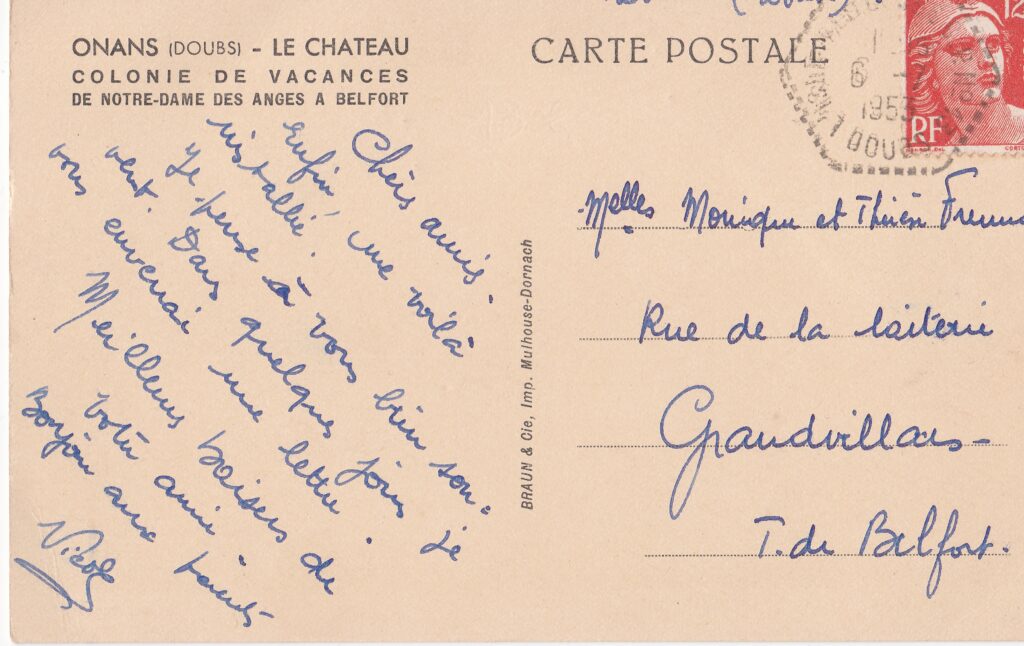 ONANS (DOUBS) - LE CHATEAU
COLONIE DE VACANCES
DE NOTRE-DAME DES ANGES A BELFORT
CARTE POSTALE
12
RF
6
1953
DOUBS
Chers amis.
Enfin, me voilà
installée.
Je pense à vous bien sou-
vent. Dans quelques jours je
vous enverrai une lettre.
Meilleurs baisers de
votre amie.
Bonjour aux parents
Nicole
BRAUN & Cie, Imp. Mulhouse-Dornach
Melles Monique et Thérèse
Rue de la laiterie
Grandvillars-
T. de Belfort.